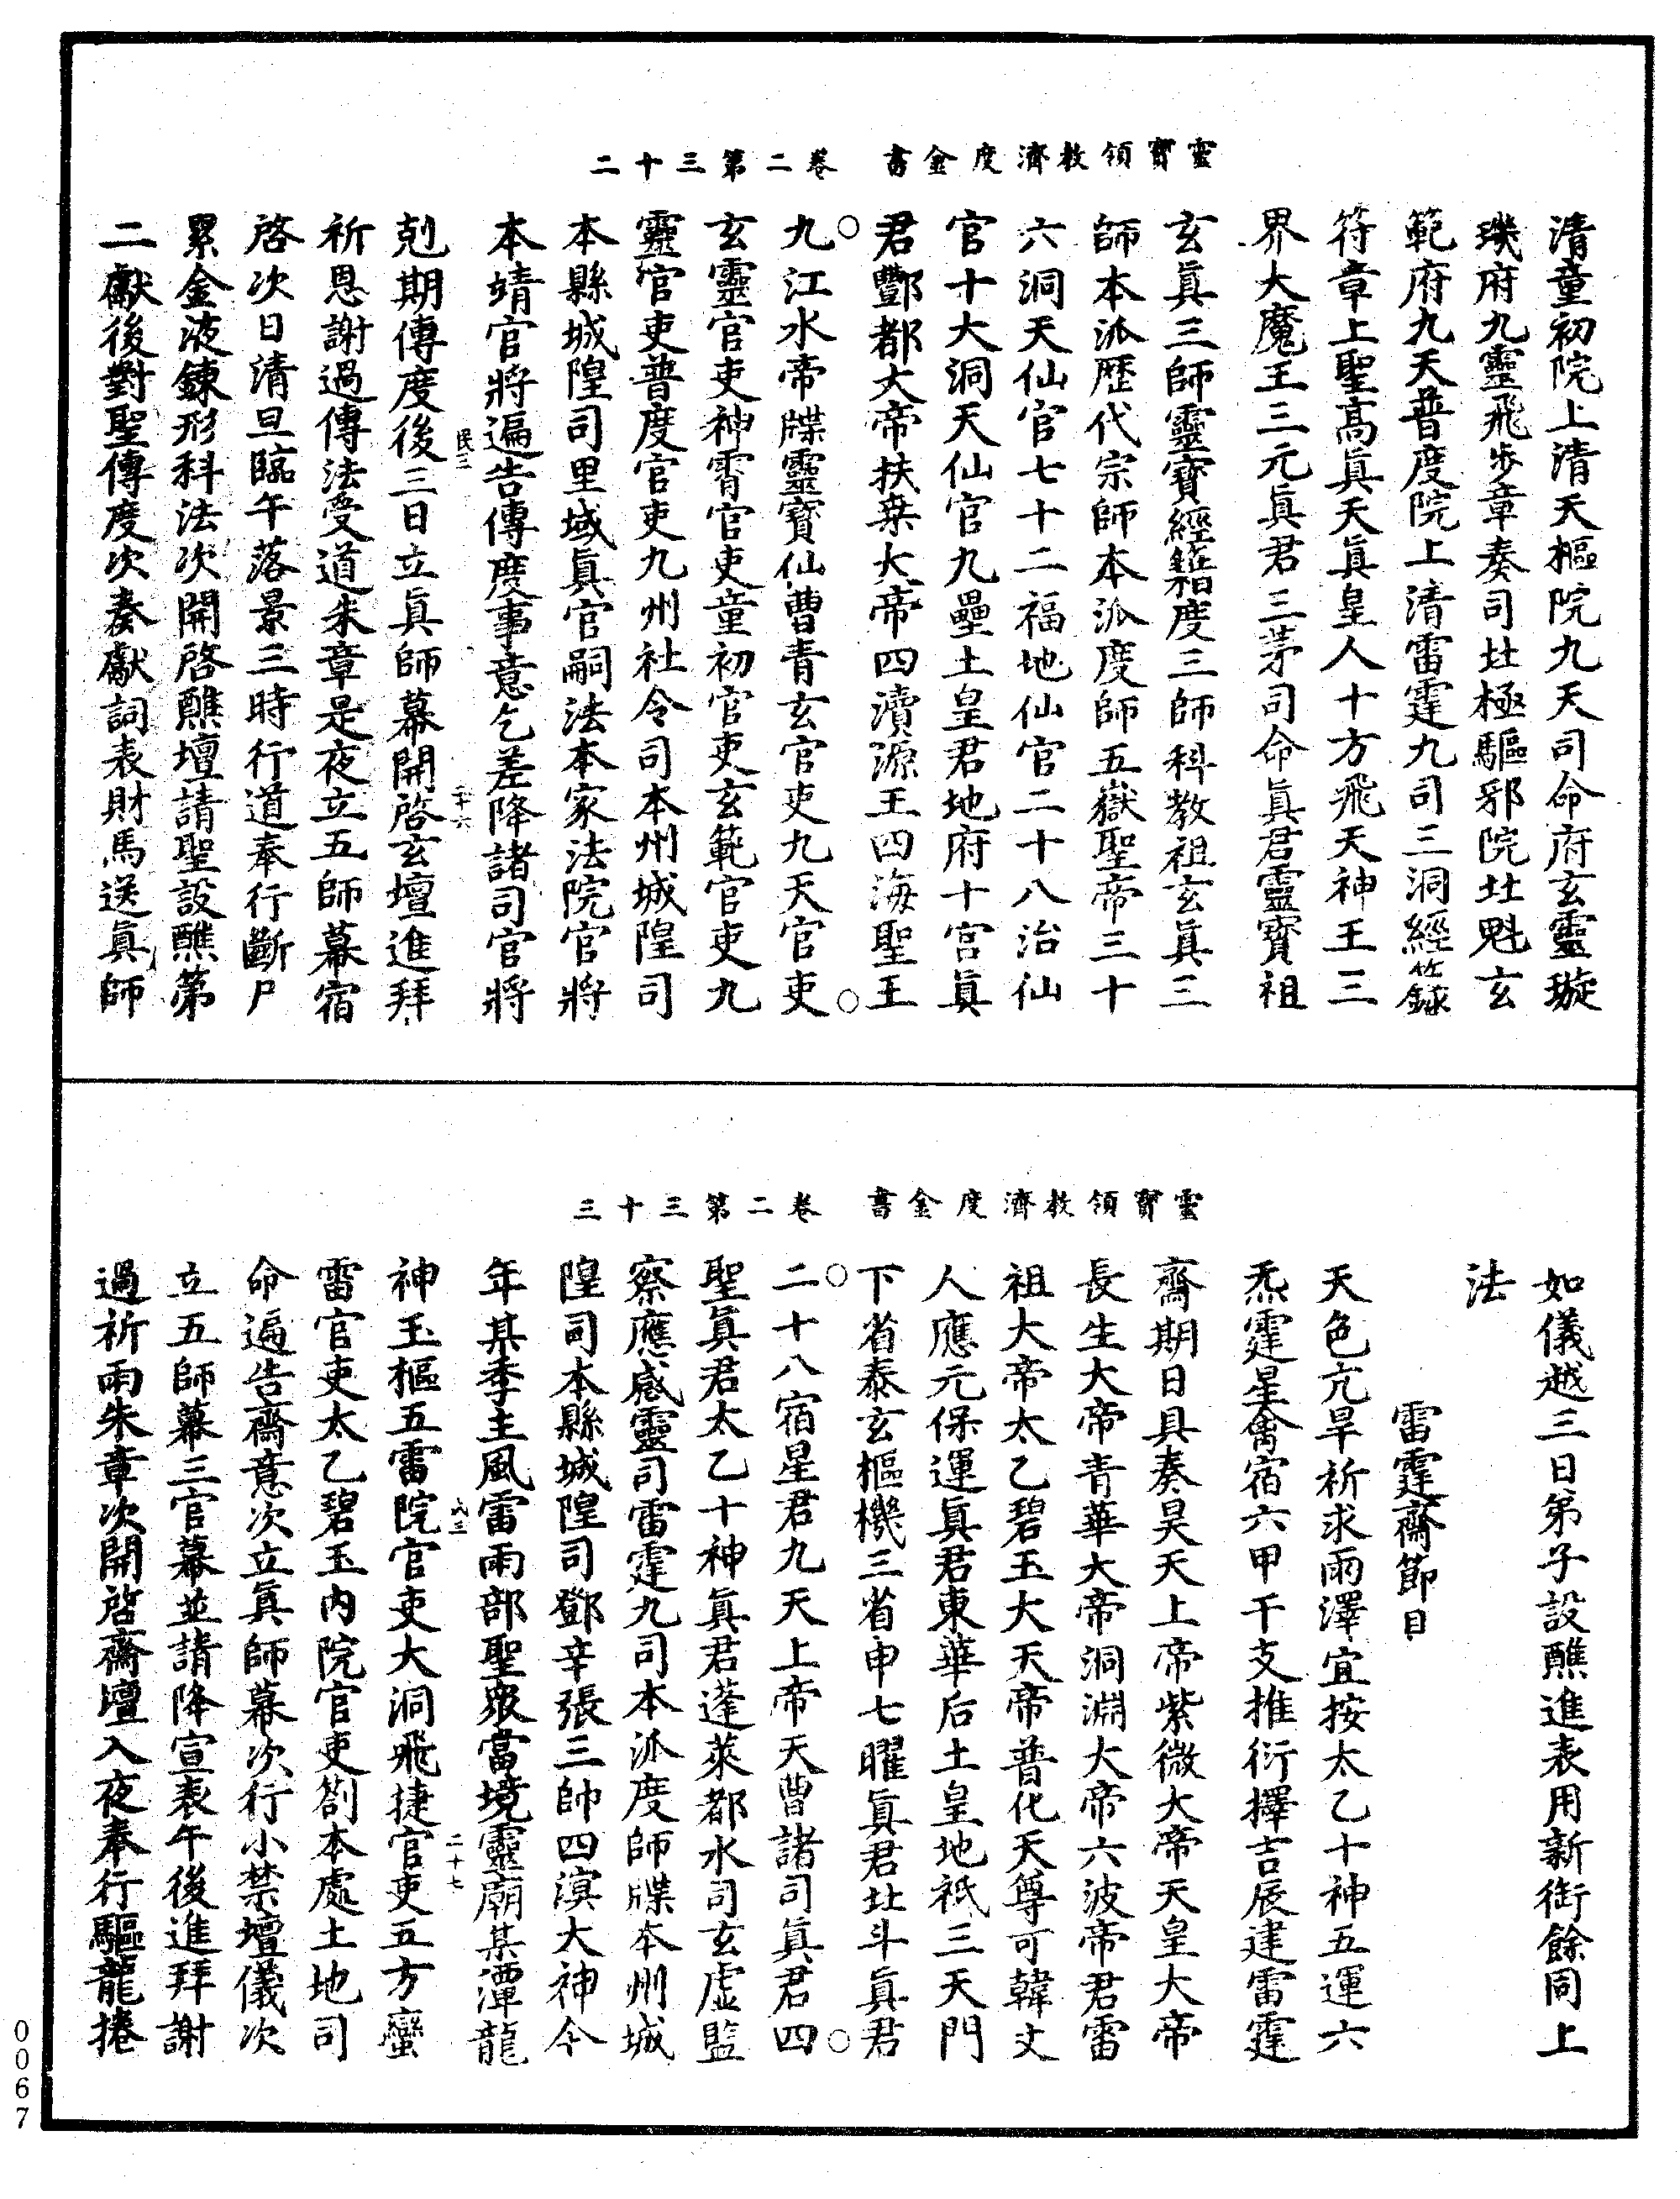 靈寶領教濟度金書　卷二第三十二
清童初院上清天樞院九天司命府玄靈璇
璣府九靈飛步章奏司北極驅邪院北魁玄
範府九天普度院上清雷霆九司三洞經籙
符章上聖高眞天眞皇人十方飛天神王三
界大魔王三元眞君三茅司命眞君靈寶祖
玄眞三師靈寶經籍度三師科教祖玄眞三
師本派歷代宗師本派度師五嶽聖帝三十
六洞天仙官七十二福地仙官二十八治仙
官十大洞天仙官九壘土皇君地府十宮眞
君酆都大帝扶桒大帝四瀆源王四海聖王
○九江水帝牒靈寶仙曹青玄官吏九天官吏○
玄靈官吏神霄官吏童初官吏玄範官吏九
靈官吏普度官吏九州社令司本州城隍司
本縣城隍司里域眞官嗣法本家法院官將
本靖官將遍告傳度事意乞差降諸司官將
民三　二十六
剋期傳度後三日立眞師幕開啓玄壇進拜
祈恩謝過傳法受道朱章是夜立五師幕宿
啓次日清旦臨午落景三時行道奉行斷尸
累金液鍊形科法次開啓醮壇請聖設醮第
二獻後對聖傳度次奏獻詞表財馬送眞師
靈寶領教濟度金書　卷二第三十三
如儀越三日弟子設醮進表用新銜餘同上
法
雷霆齋節目
天色亢旱祈求雨澤宜按太乙十神五運六
炁霆星禽宿六甲干支推衍擇吉辰建雷霆
齋期日具奏昊天上帝紫微大帝天皇大帝
長生大帝青華大帝洞淵大帝六波帝君雷
祖大帝太乙碧玉大天帝普化天尊可韓丈
人應元保運眞君東華后土皇地祇三天門
下省泰玄樞機三省申七曜眞君北斗眞君
○二十八宿星君九天上帝天曹諸司眞君四○
聖眞君太乙十神眞君蓬萊都水司玄虛監
察應感靈司雷霆九司本派度師牒本州城
隍司本縣城隍司鄧辛張三帥四溟大神今
年某季主風雷雨部聖衆當境靈廟某潭龍
民三　二十七
神玉樞五雷院官吏大洞飛捷官吏五方蠻
雷官吏太乙碧玉內院官吏劄本處土地司
命遍告齋意次立眞師幕次行小禁壇儀次
立五師幕三官幕並請降宣表午後進拜謝
過祈雨朱章次開啓齋壇入夜奉行驅龍捲
0067